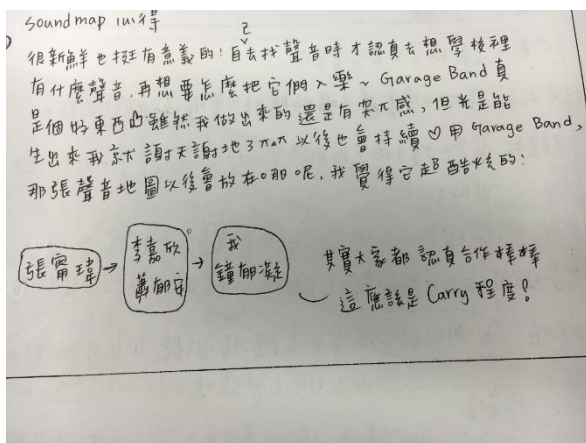 Soundmap 心得
很新鮮也挺有意義的!自己去找聲音時才認真去想學校裡
有什麼聲音,再想要怎麼把它們入樂~Garage Band真
是個好東西凸雖然我做出來的還是有突兀感,但光是能
生出來我就謝天謝地了QQ以後也會持續♡用Garage Band,
那張聲音地圖以後會放在哪呢,我覺得它超酷炫的!
張甯瑋→李嘉欣 蕭郁安→我 鐘郁凝
其實大家都認真合作棒棒
這應該是Carry程度!